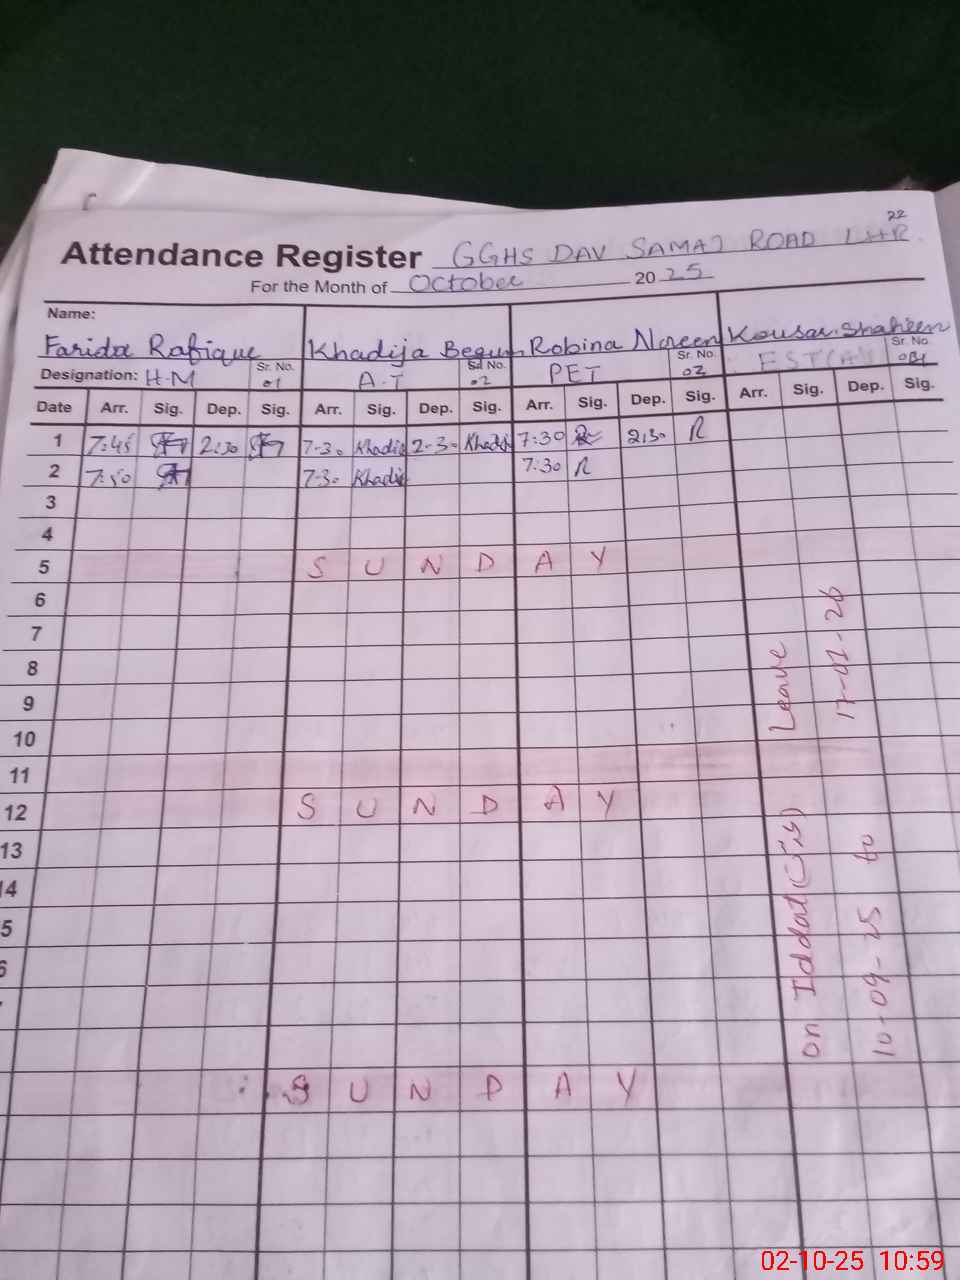 22
Attendance Register GGHS DAV SAMAJ ROAD LHR
For the Month of October 2025
Name:
Farida Rafique Khadija Begum Robina Noreen Kousar Shaheen
Designation: H-M Sr. No. 01 A.T Sr. No. 02 PET Sr. No. 02 EST Sr. No.
Date Arr. Sig. Dep. Sig. Arr. Sig. Dep. Sig. Arr. Sig. Dep. Sig. Arr. Sig. Dep. Sig.
1 7:45 2:30 7-30 Khadija 2-30 Khadija 7:30 R 2:30 R
2 7:50 7-30 Khadija 7:30 R
3
4
5 SUNDAY
6
7
8
9
10
11
12 SUNDAY
13
14
5
6
SUNDAY
on Iddat Leave
10-09-25 to 17-01-26
02-10-25 10:59